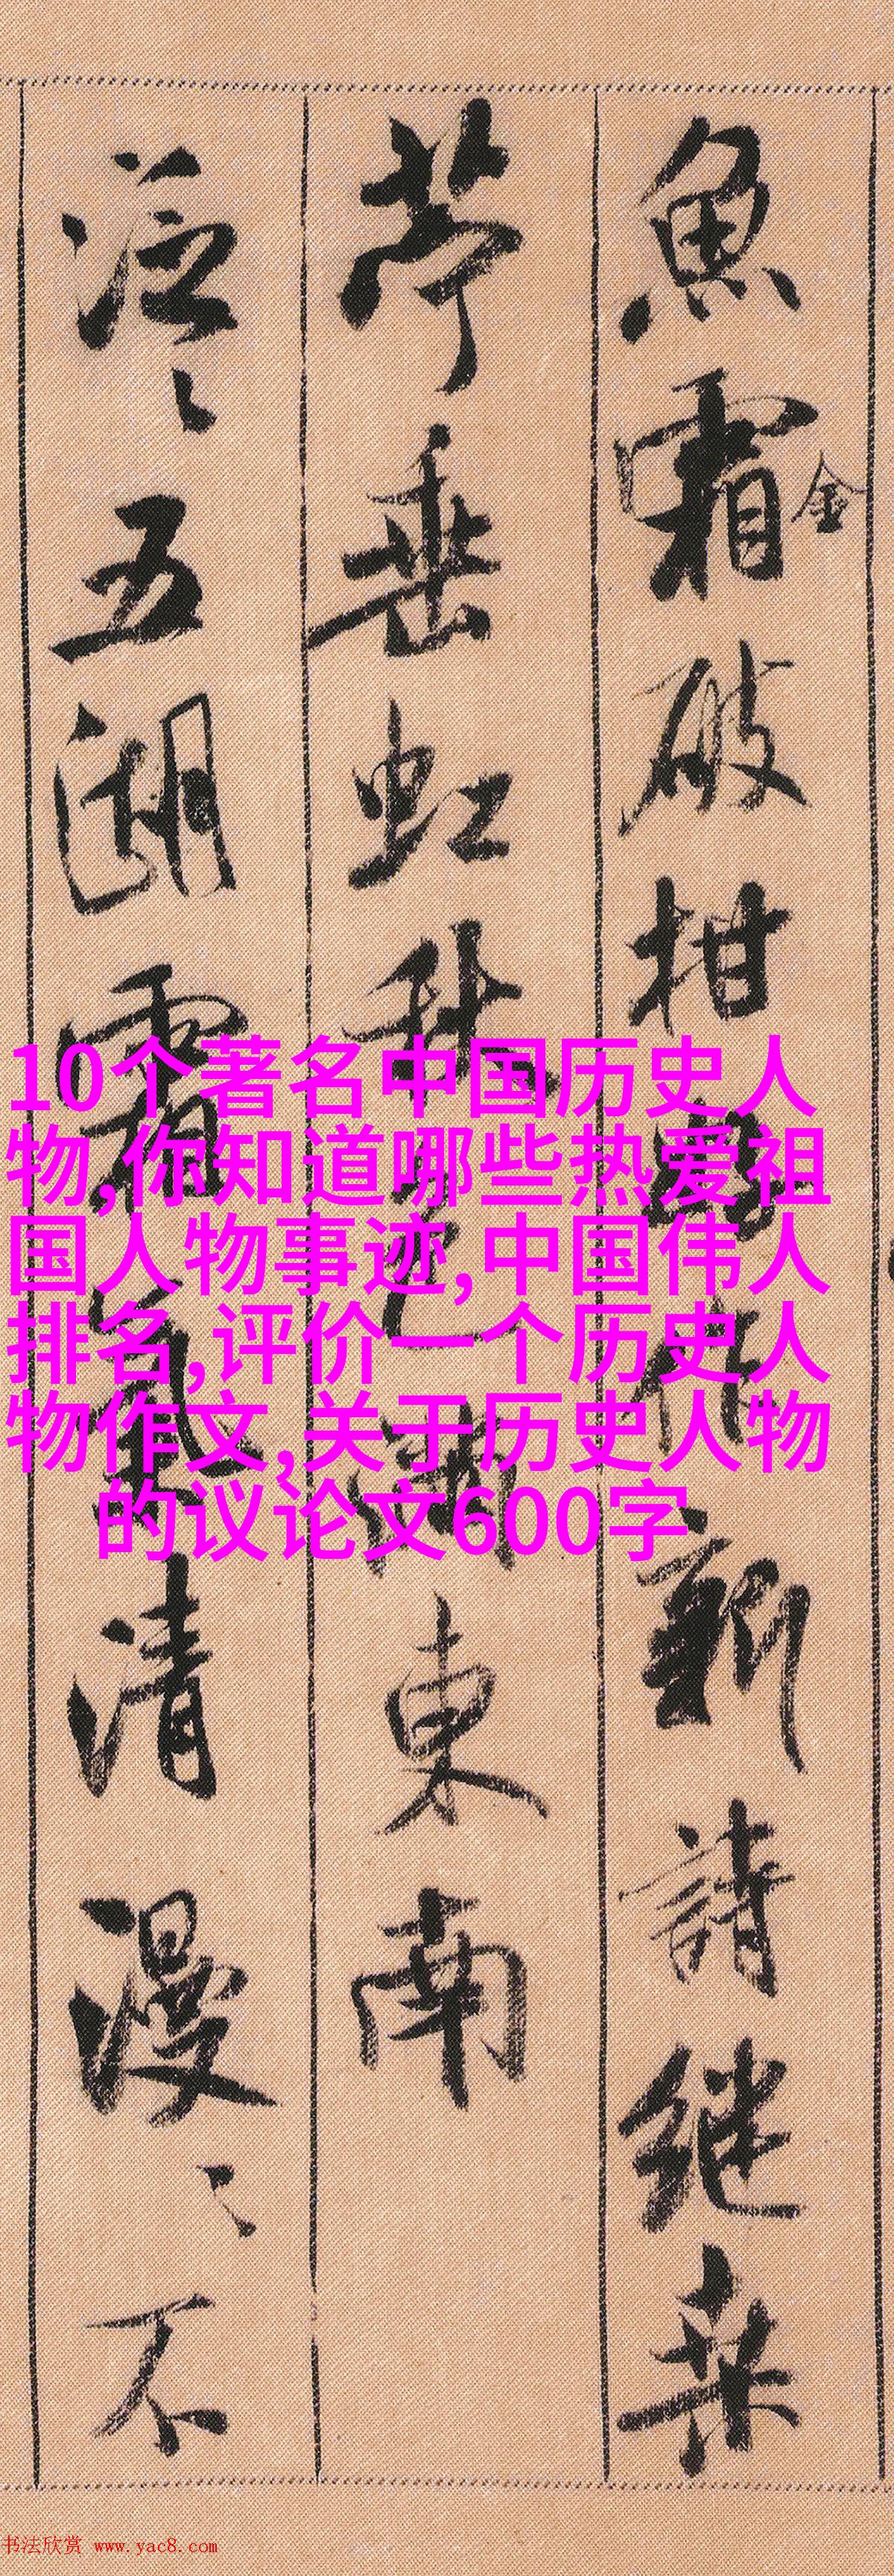 魚霜破柑
金
作新詩継桒
苧垂虹秋色満東南
泛〻五湖霜氣清漫〻不
10个著名中国历史人
物,你知道哪些热爱祖
国人物事迹,中国伟人
排名,评价一个历史人
物作文,关于历史人物
的议论文600字
书法欣赏 www.yac8.com